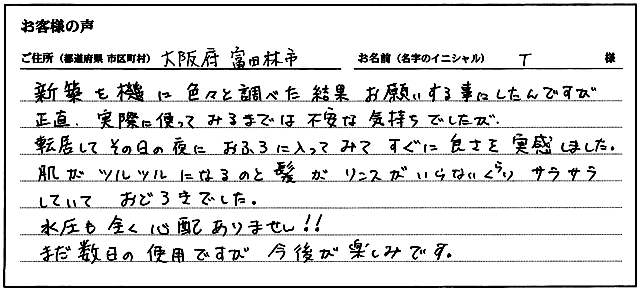 お客様の声
ご住所(都道府県 市区町村) 大阪府 富田林市 お名前(名字のイニシャル) T 様
新築を機に色々と調べた結果 お願いする事にしたんですが
正直、実際に使ってみるまでは不安な気持ちでしたが、
転居してその日の夜に おふろに入ってみて すぐに良さを実感しました。
肌がツルツルになるのと髪がリンスがいらないくらい サラサラ
していて おどろきでした。
水圧も全く心配ありません!!
まだ数日の使用ですが 今後が楽しみです。